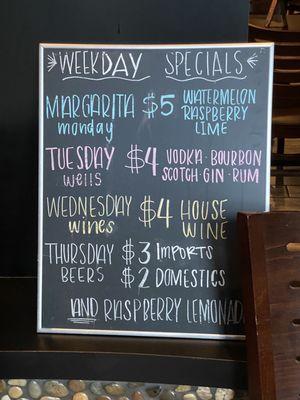 WEEKDAY SPECIALS
MARGARITA monday $5 WATERMELON RASPBERRY LIME
TUESDAY wells $4 VODKA · BOURBON SCOTCH · GIN · RUM
WEDNESDAY wines $4 HOUSE WINE
THURSDAY BEERS $3 IMPORTS
$2 DOMESTICS
AND RASPBERRY LEMONAD